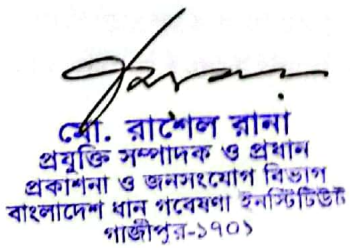 মো. রাশেল রানা
প্রযুক্তি সম্পাদক ও প্রধান
প্রকাশনা ও জনসংযোগ বিভাগ
বাংলাদেশ ধান গবেষণা ইনস্টিটিউট
গাজীপুর-১৭০১